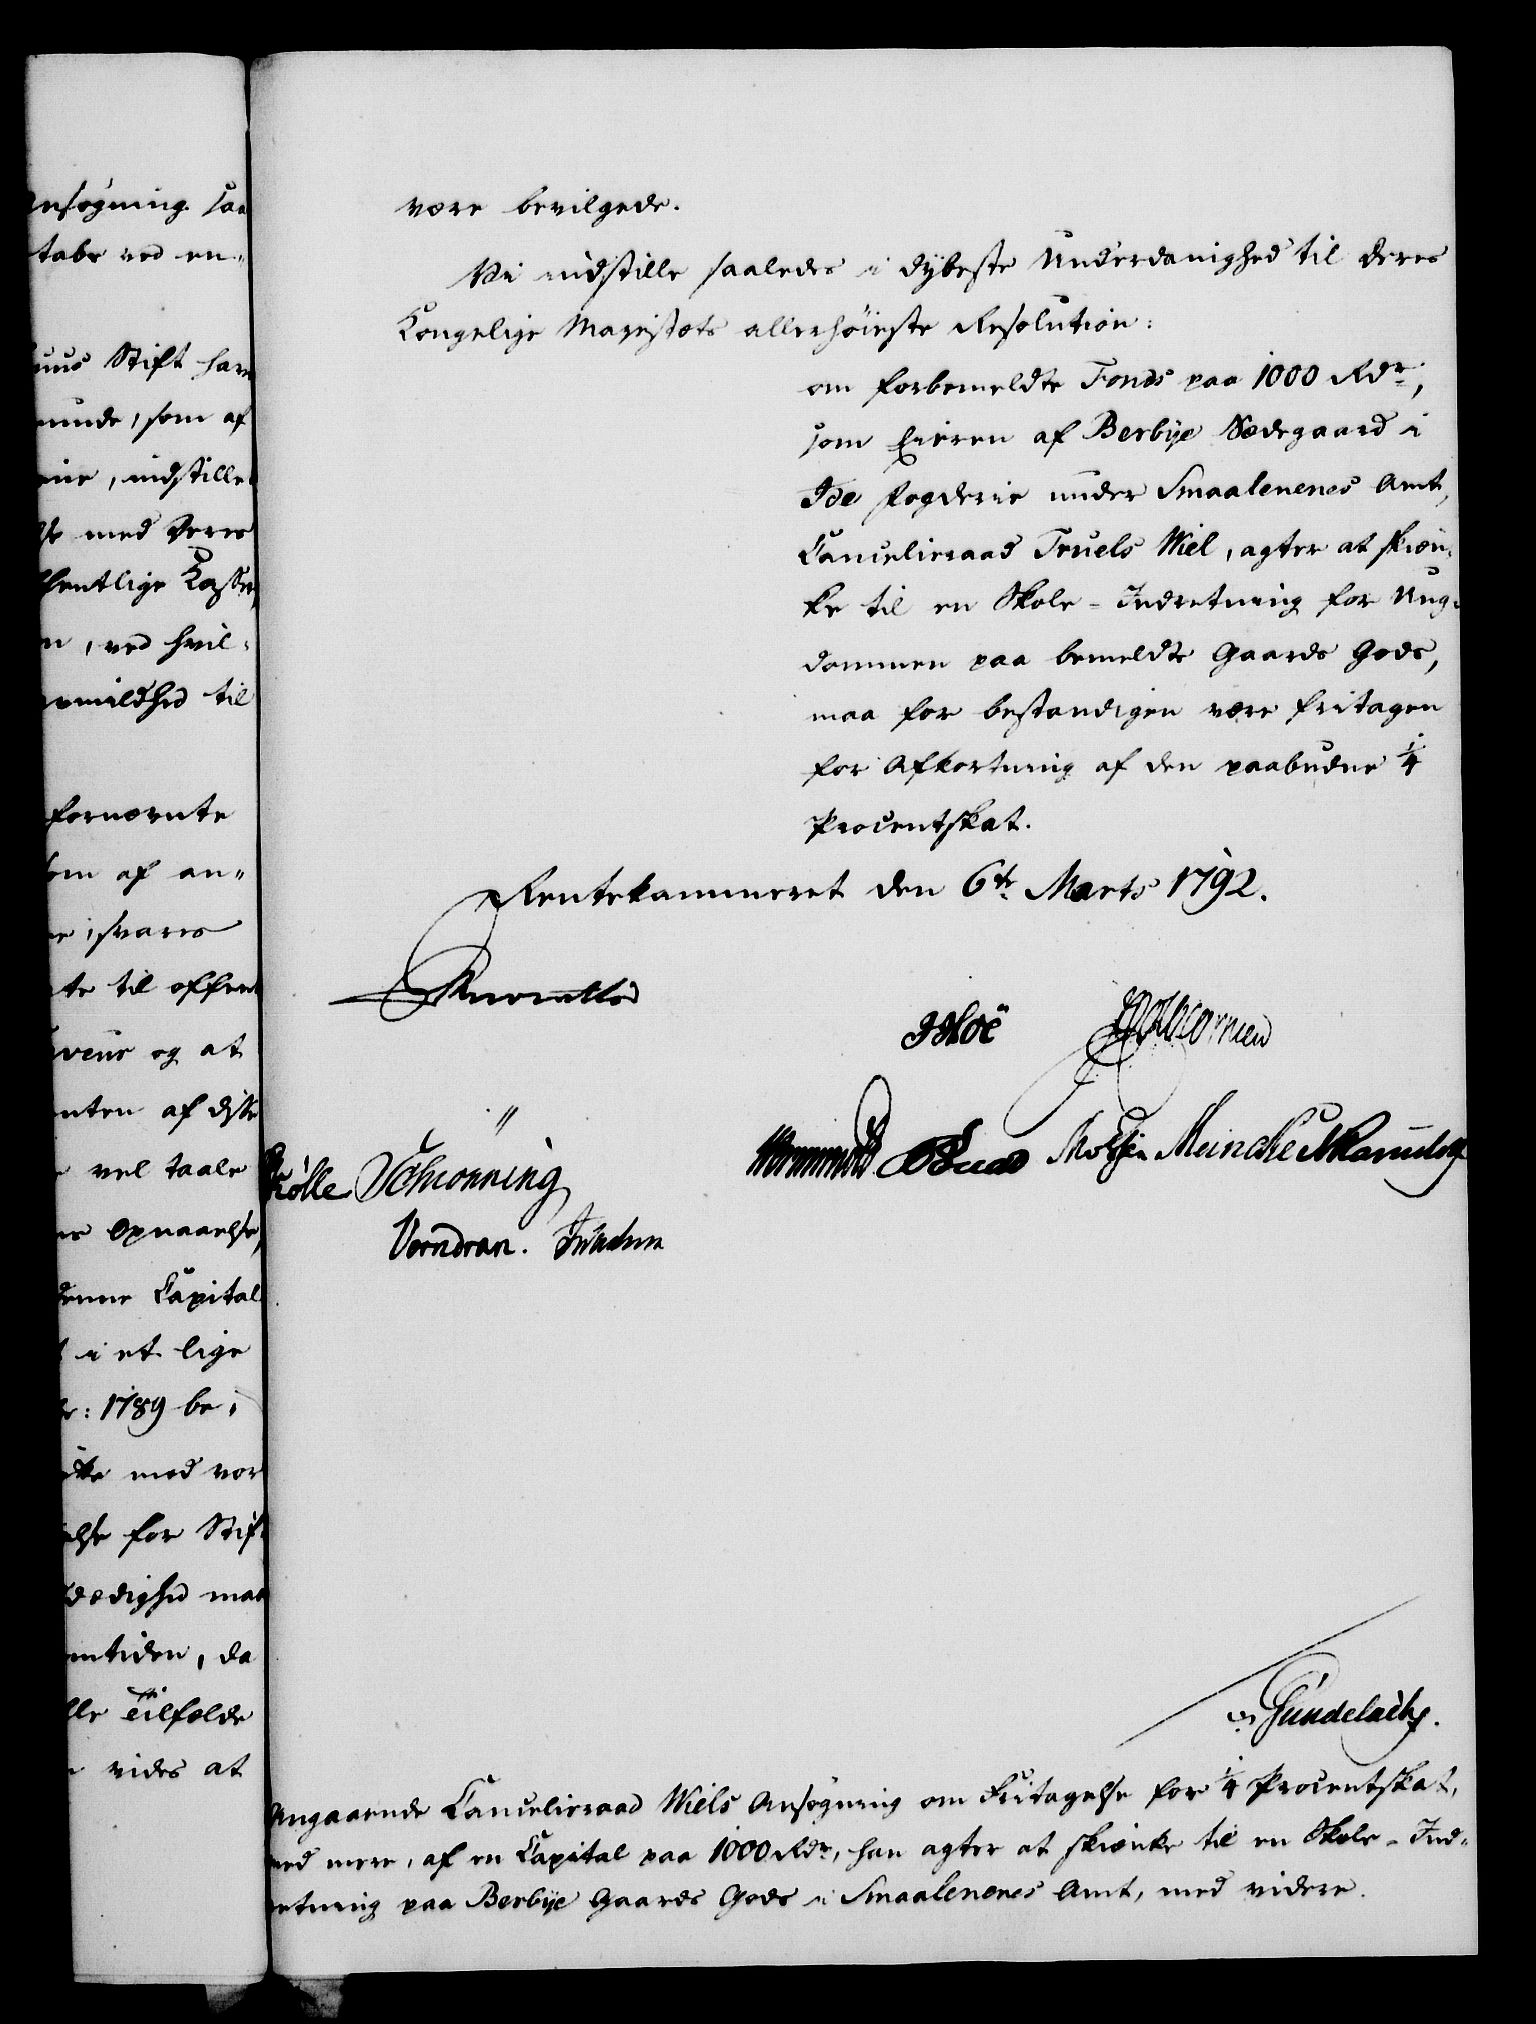 nsøgning saa
tabe ved en„
uus Stift har
unde, som af
eie, indstillet
se med Deres
fentlige Kasser,
n, ved hvil„
vmildhed til
fornævnte
om af an„
e isvares
te til offent
vens og at
nten af disse
vel taale
es Opnaaelse,
denne Capital
i et lige
: 1789 be„
ikke med vor
else for Stif„
dædighed maa
mtiden, da
lle Tilfælde
vides at
være bevilgede.
Vi indstille saaledes i dybeste Underdanighed til Deres
Kongelige Majestæts allerhøieste Resolution:
om forbemeldte Fonds paa 1000 Rdr,
som Eieren af Berbye Sædegaard i
Ide Fogderie under Smaalenenes Amt,
Cancelieraad Truels Wiel, agter at skiæn„
ke til en Skole-Indretning for Ung„
dommen paa bemeldte Gaards Gods,
maa for bestandigen være fritagen
for Afkortning af den paabudne 1/4
Procentskat.
Rentekammeret den 6te Marts 1792.
JHoë
Schiønning Meincke
Vorndran.
Gündelach.
Angaaende Cancelieraad Wiels Ansøgning om Fritagelse for 1/4 Procentskat,
med mere, af en Capital paa 1000 Rdr, han agter at skiænke til en Skole-Ind„
retning paa Berbye Gaards Gods i Smaalenenes Amt, med videre.